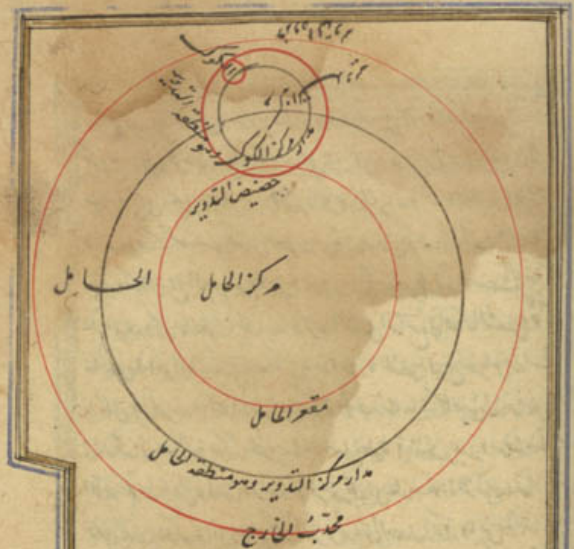 الكوكب
مدار مركز الكوكب وهو منطقة التدوير
حضيض التدوير
الحامل
مركز الحامل
مقعر الحامل
مدار مركز التدوير وهو منطقة الحامل
محدّب الخارج